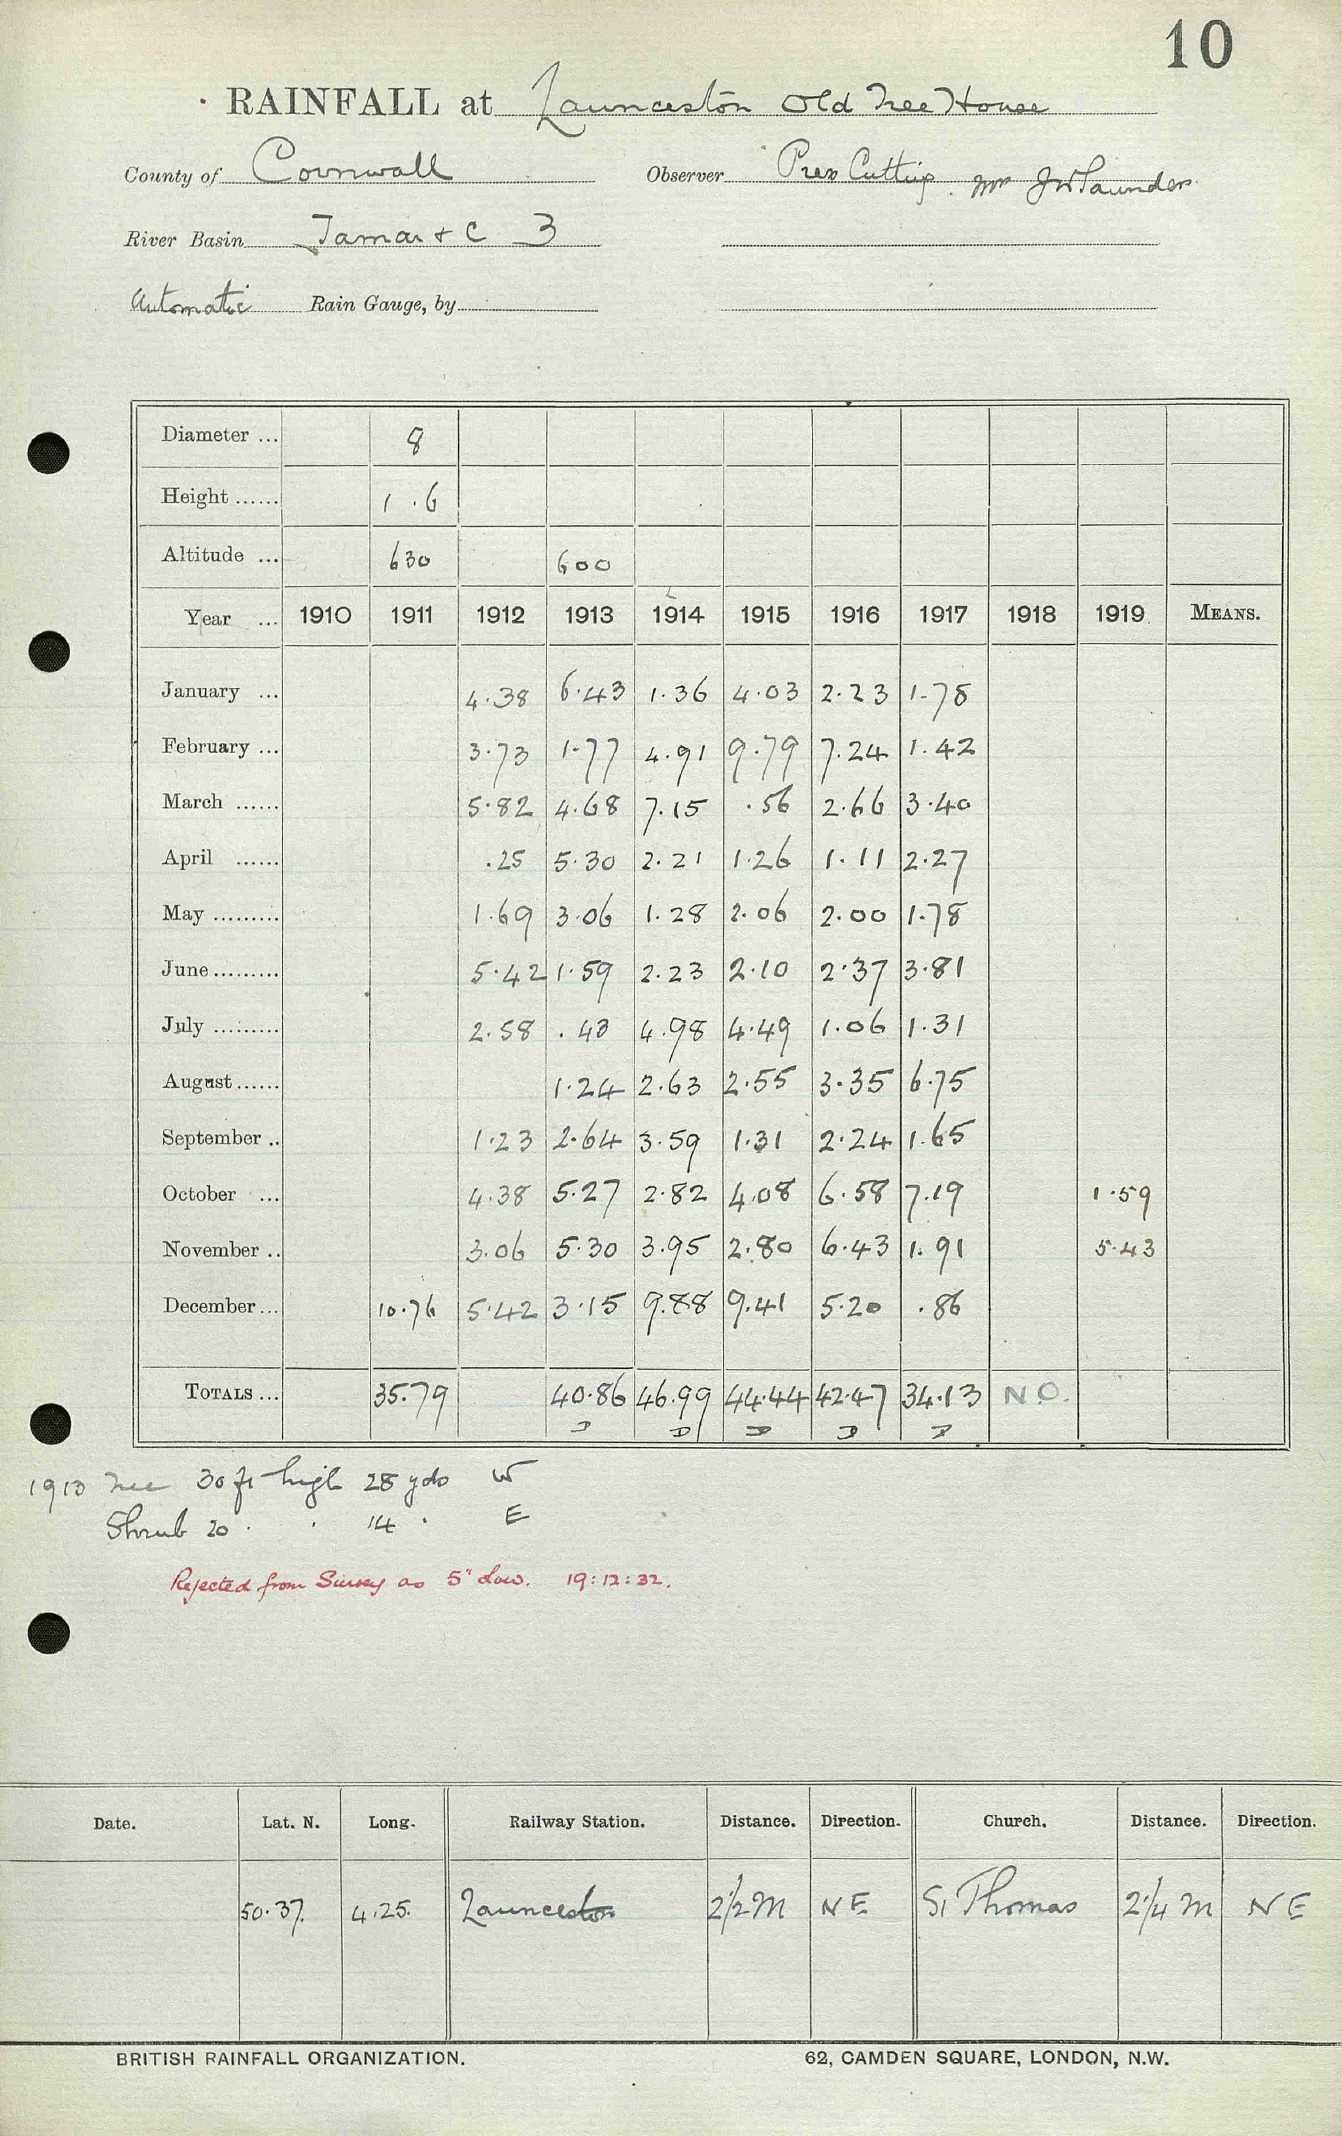 10
RAINFALL at Launceston Old Tree House
County of Cornwall Observer Press Cutting. Mr J W Saunders
River Basin Tamar & C 3
Automatic Rain Gauge, by
Diameter ... 8
Height ...... 1 .6
Altitude ... 630 600
Year ... 1910 1911 1912 1913 1914 1915 1916 1917 1918 1919 MEANS.
January ... 4.38 6.43 1.36 4.03 2.23 1.78
February ... 3.73 1.77 4.91 9.79 7.24 1.42
March ...... 5.82 4.68 7.15 .56 2.66 3.40
April ...... .25 5.30 2.21 1.26 1.11 2.27
May ......... 1.69 3.06 1.28 2.06 2.00 1.78
June ......... 5.42 1.59 2.23 2.10 2.37 3.81
July ......... 2.58 .43 4.98 4.49 1.06 1.31
August ...... 1.24 2.63 2.55 3.35 6.75
September .. 1.23 2.64 3.59 1.31 2.24 1.65
October ... 4.38 5.27 2.82 4.08 6.58 7.19 1.59
November .. 3.06 5.30 3.95 2.80 6.43 1.91 5.43
December ... 10.76 5.42 3.15 9.88 9.41 5.20 .86
TOTALS ... 35.79 40.86 46.99 44.44 42.47 34.13 N.O.
D D D D D
1913 Tree 30 ft high 28 yds W
Shrub 20 " " 14 " E
Rejected from Survey as 5" Low. 19:12:32.
Date. Lat. N. Long. Railway Station. Distance. Direction. Church. Distance. Direction.
50.37. 4.25. Launceston 2½ M NE St Thomas 2¼ M NE
BRITISH RAINFALL ORGANIZATION. 62, CAMDEN SQUARE, LONDON, N.W.